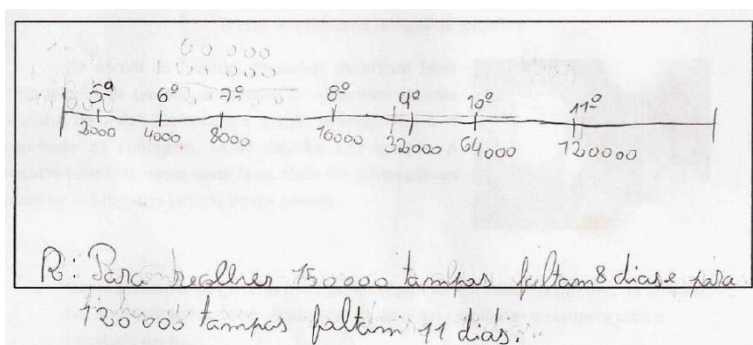 00000
0000
5ª 6º 7º 8º 9º 10º 11º
2000 4000 8000 16000 32000 64000 120000
R: Para recolher 150000 tampas faltam 8 dias e para
120000 tampas faltam 11 dias.